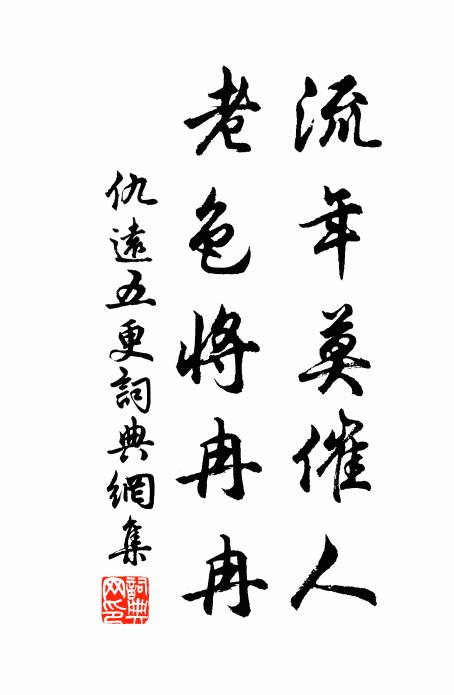 流年莫催人
老色將冉冉
仇遠五更詞典網集
詞典網印